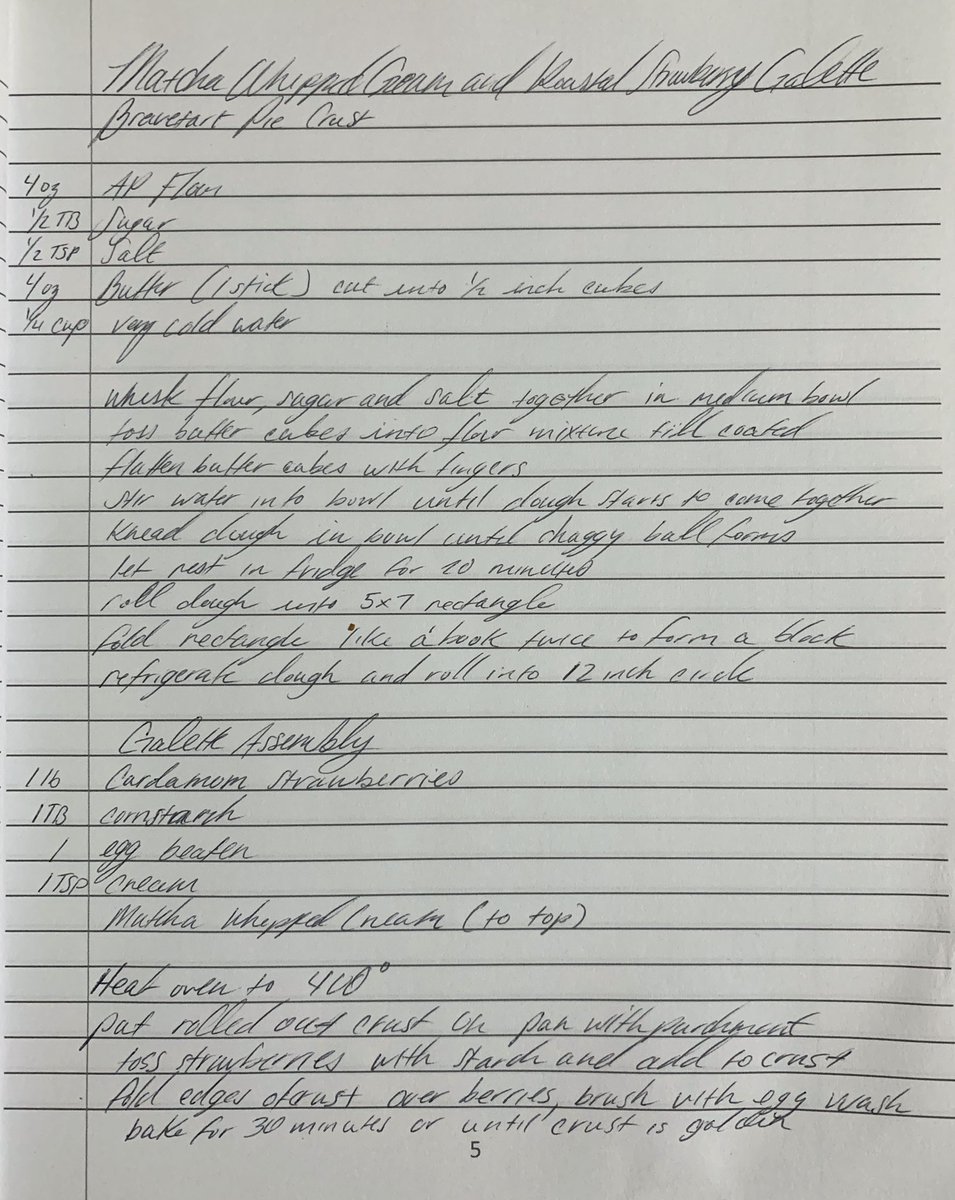 Matcha Whipped Cream and Roasted Strawberry Galette
Bravetart Pie Crust
4oz AP Flour
1/2 TB Sugar
1/2 TSP Salt
4oz Butter (1 stick) cut into 1/2 inch cubes
1/4 cup very cold water
whisk flour, sugar and salt together in medium bowl
toss butter cubes into flour mixture till coated
flatten butter cubes with fingers
stir water into bowl until dough starts to come together
knead dough in bowl until shaggy ball forms
let rest in fridge for 20 minutes
roll dough into 5x7 rectangle
fold rectangle like a book twice to form a block
refrigerate dough and roll into 12 inch circle
Galette Assembly
1 lb Cardamom strawberries
1TB cornstarch
1 egg beaten
1TSP cream
Matcha Whipped Cream (to top)
Heat oven to 400°
put rolled out crust on pan with parchment
toss strawberries with starch and add to crust
fold edges of crust over berries, brush with egg wash
bake for 30 minutes or until crust is golden
5